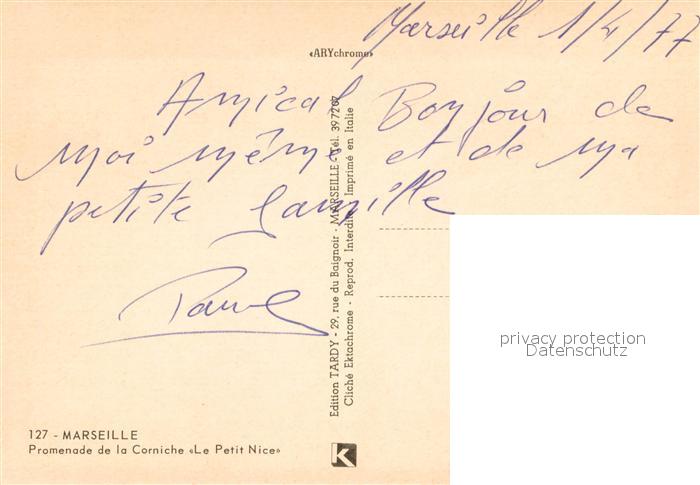 Marseille 1/4/77
«ARYchrome»
Amical Bonjour de
moi même et de ma
petite famille
Edition TARDY - 29, rue du Baignoir - MARSEILLE - Tél. 39 72 07
Cliché Ektachrome - Reprod. Interdite Imprimé en Italie
privacy protection
Datenschutz
127 - MARSEILLE
Promenade de la Corniche «Le Petit Nice»
K